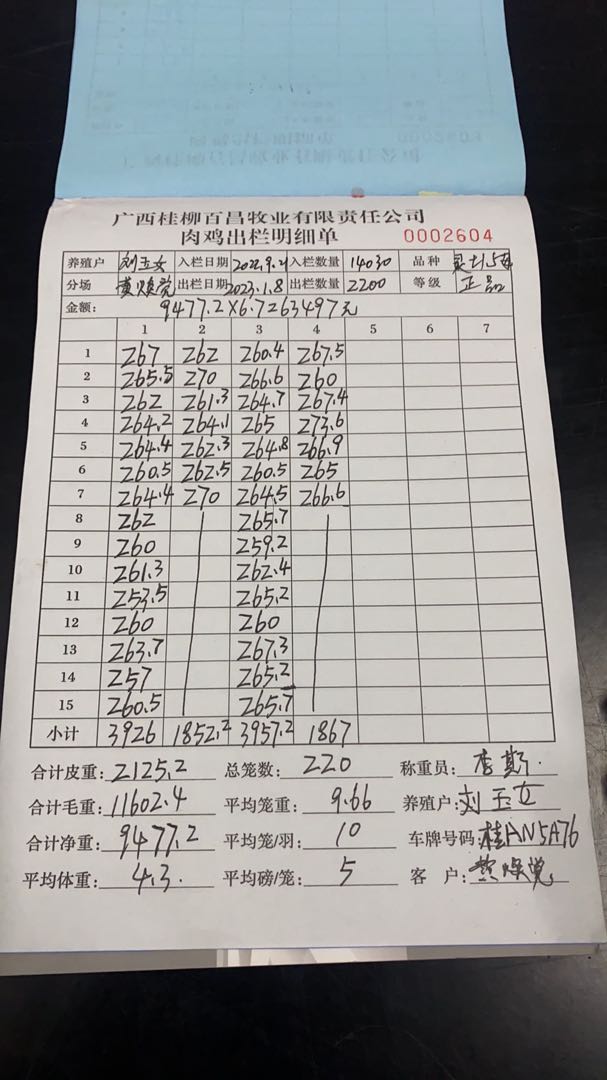 广西桂柳百昌牧业有限责任公司
肉鸡出栏明细单 0002604
养殖户 刘玉女 入栏日期 2022.9.21 入栏数量 14030 品种
分场 出栏日期 2023.1.8 出栏数量 2200 等级 正品
金额: 9477.2×6.7=63497元
1 2 3 4 5 6 7
1 267 262 260.4 267.5
2 265.5 270 266.6 260
3 262 261.3 264.7 267.4
4 264.2 264.1 265 273.6
5 264.4 262.3 264.8 266.9
6 260.5 262.5 260.5 265
7 264.4 270 264.5 266.6
8 262 265.7
9 260 259.2
10 261.3 262.4
11 253.5 265.2
12 260 260
13 263.7 267.3
14 257 265.2
15 260.5 265.7
小计 3926 1852.2 3957.2 1867
合计皮重: 2125.2 总笼数: 220 称重员: 李斯
合计毛重: 11602.4 平均笼重: 9.66 养殖户: 刘玉女
合计净重: 9477.2 平均笼/羽: 10 车牌号码: 桂AN5A76
平均体重: 4.3. 平均磅/笼: 5 客户: